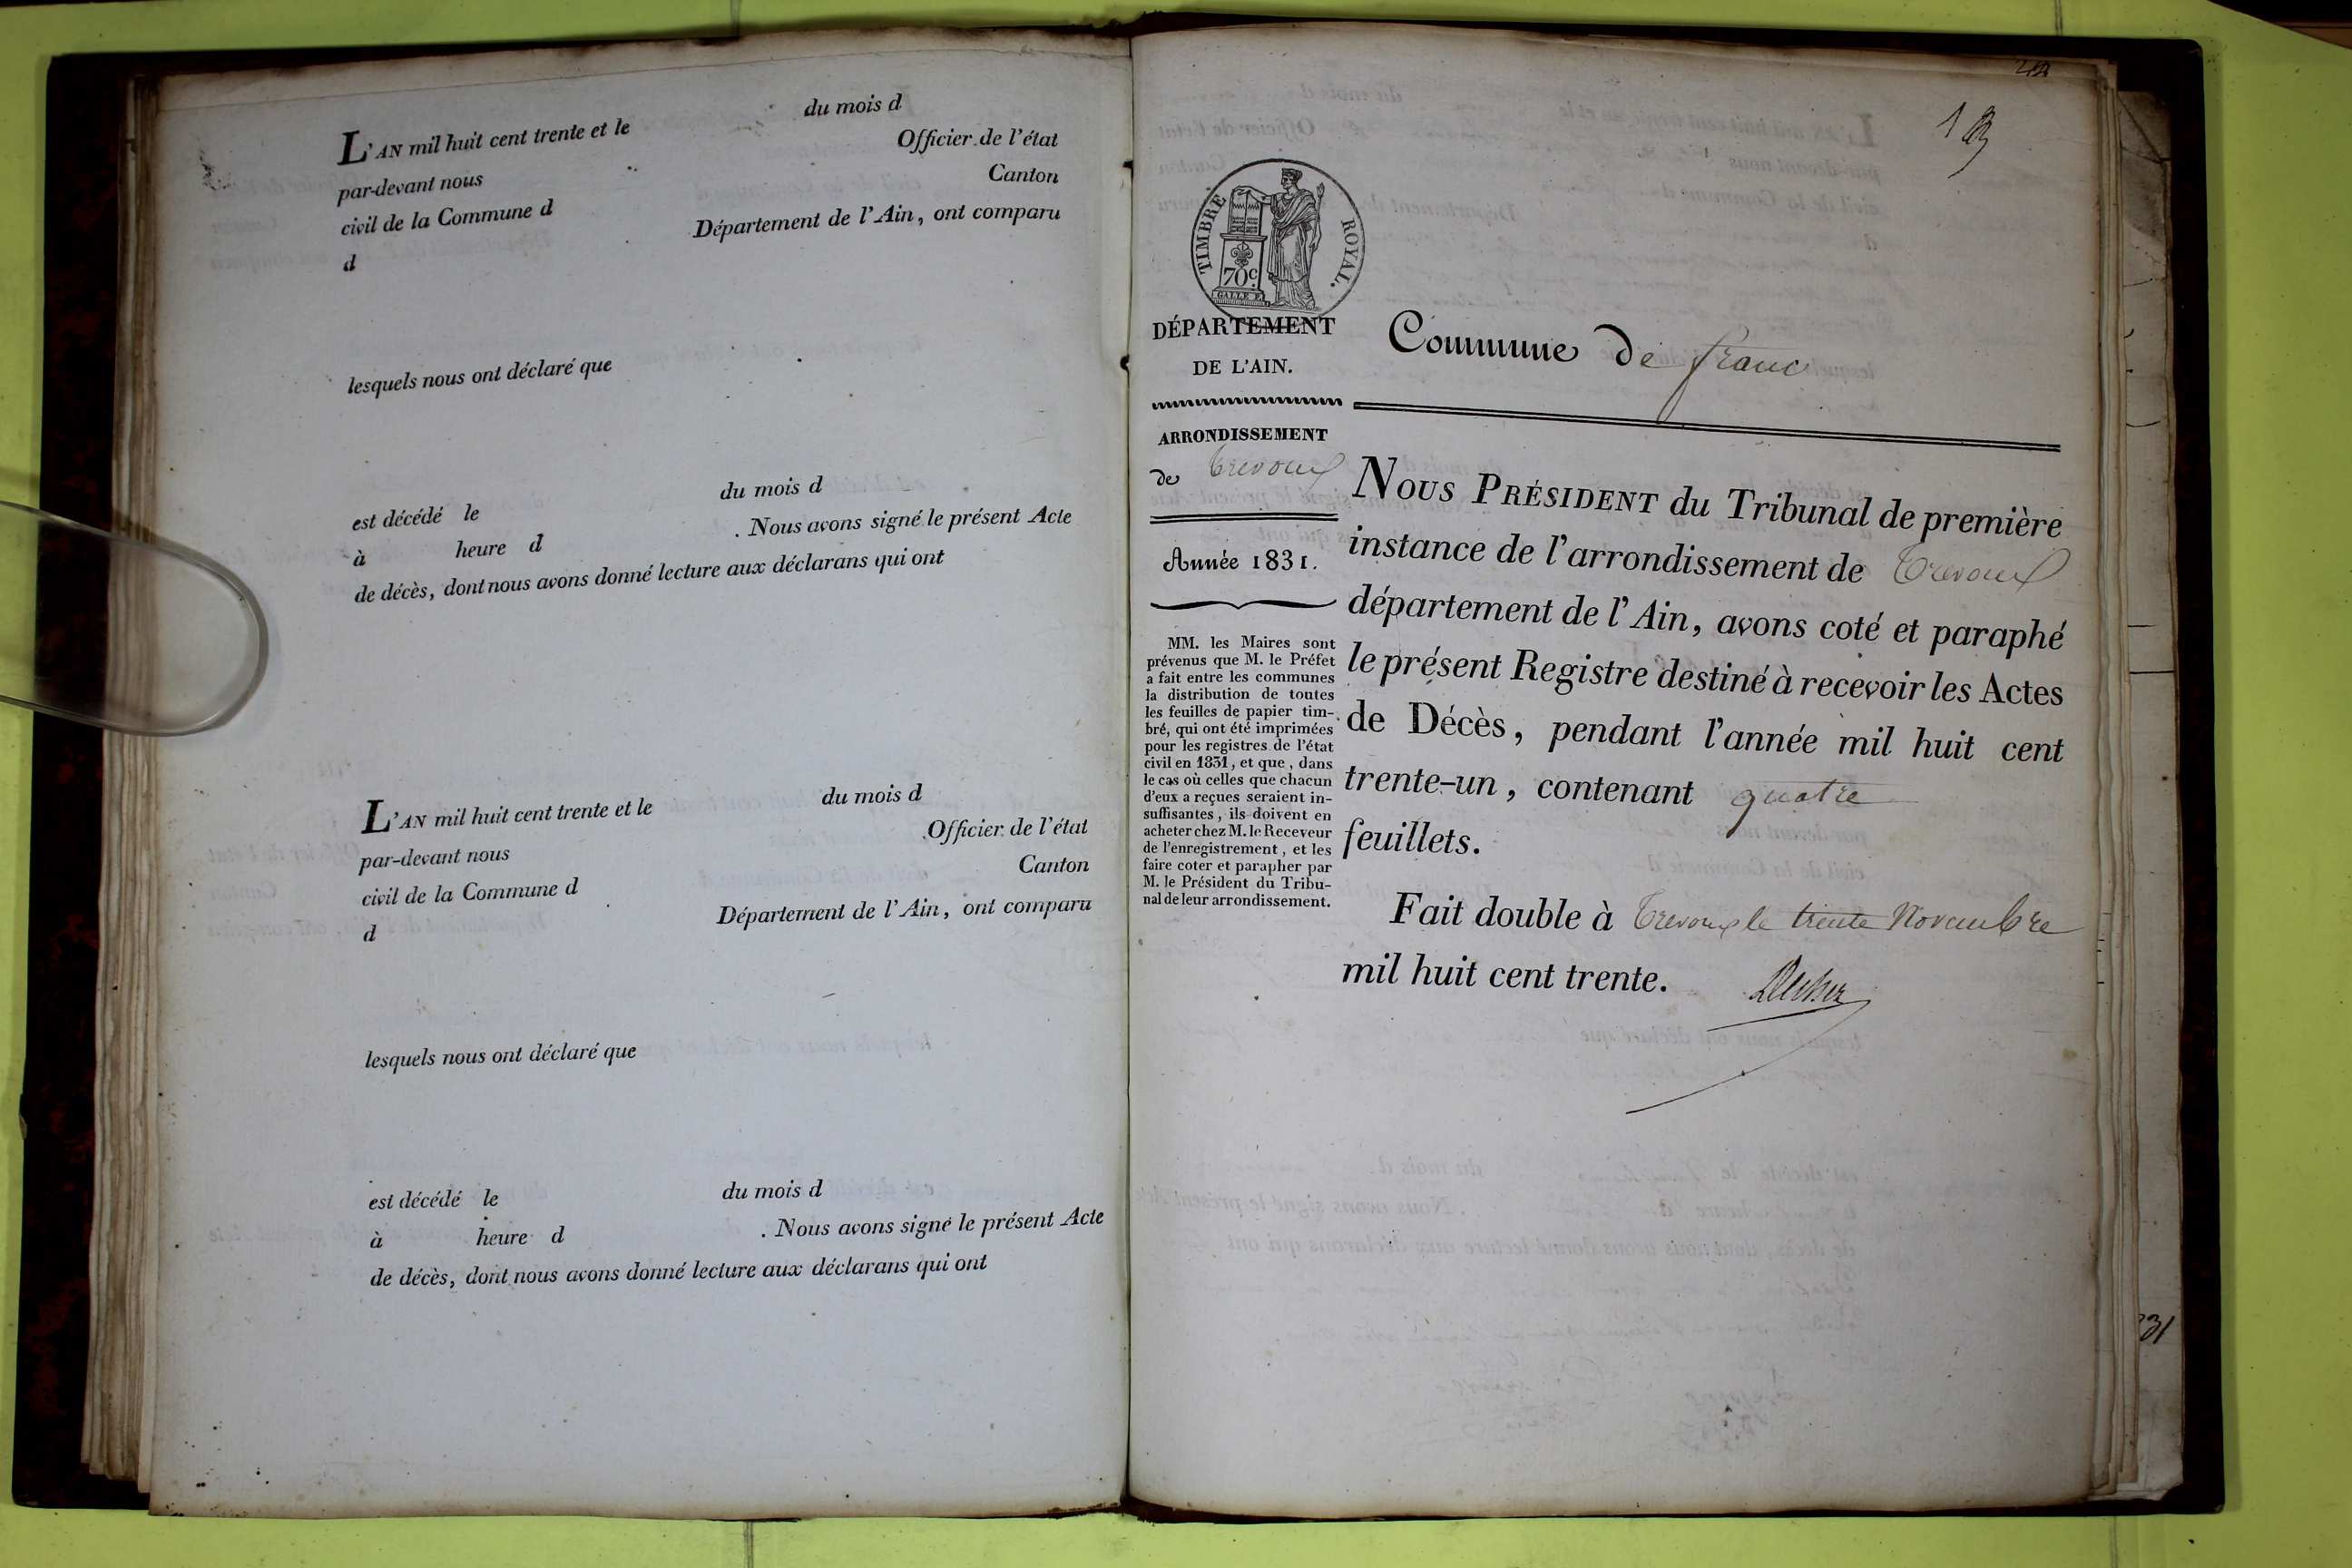 du mois d
L'AN mil huit cent trente et le
Officier de l'état
par-devant nous
Canton
civil de la Commune d
Département de l'Ain, ont comparu
d
lesquels nous ont déclaré que
du mois d
est décédé le
. Nous avons signé le présent Acte
à heure d
de décès, dont nous avons donné lecture aux déclarans qui ont
du mois d
L'AN mil huit cent trente et le
Officier de l'état
par-devant nous
Canton
civil de la Commune d
Département de l'Ain, ont comparu
d
lesquels nous ont déclaré que
du mois d
est décédé le
. Nous avons signé le présent Acte
à heure d
de décès, dont nous avons donné lecture aux déclarans qui ont
1
TIMBRE ROYAL.
70c.
DÉPARTEMENT
DE L'AIN.
Commune de franc
ARRONDISSEMENT
de Trevoux
Année 1831.
MM. les Maires sont
prévenus que M. le Préfet
a fait entre les communes
la distribution de toutes
les feuilles de papier tim-
bré, qui ont été imprimées
pour les registres de l'état
civil en 1831, et que, dans
le cas où celles que chacun
d'eux a reçues seraient in-
suffisantes, ils doivent en
acheter chez M. le Receveur
de l'enregistrement, et les
faire coter et parapher par
M. le Président du Tribu-
nal de leur arrondissement.
NOUS PRÉSIDENT du Tribunal de première
instance de l'arrondissement de Trevoux
département de l'Ain, avons coté et paraphé
le présent Registre destiné à recevoir les Actes
de Décès, pendant l'année mil huit cent
trente-un, contenant quatre
feuillets.
Fait double à Trevoux le trente Novembre
mil huit cent trente.
31